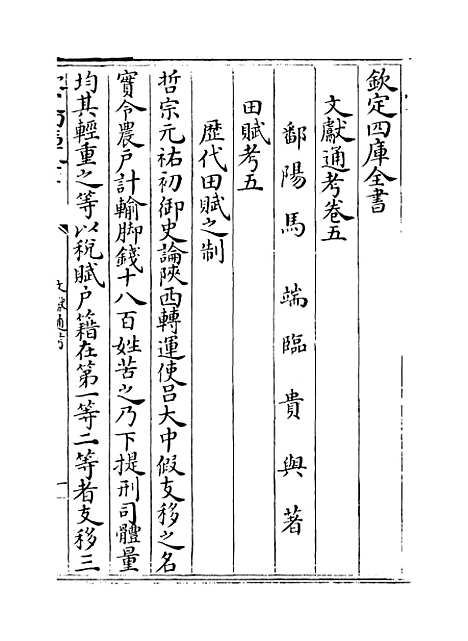 欽定四庫全書
文獻通考卷五
鄱陽馬端臨貴與著
田賦考五
歷代田賦之制
哲宗元祐初御史論陜西轉運使吕大中假支移之名
實令農户計輸脚錢十八百姓苦之乃下提刑司體量
均其輕重之等以税賦户籍在第一等二等者支移三